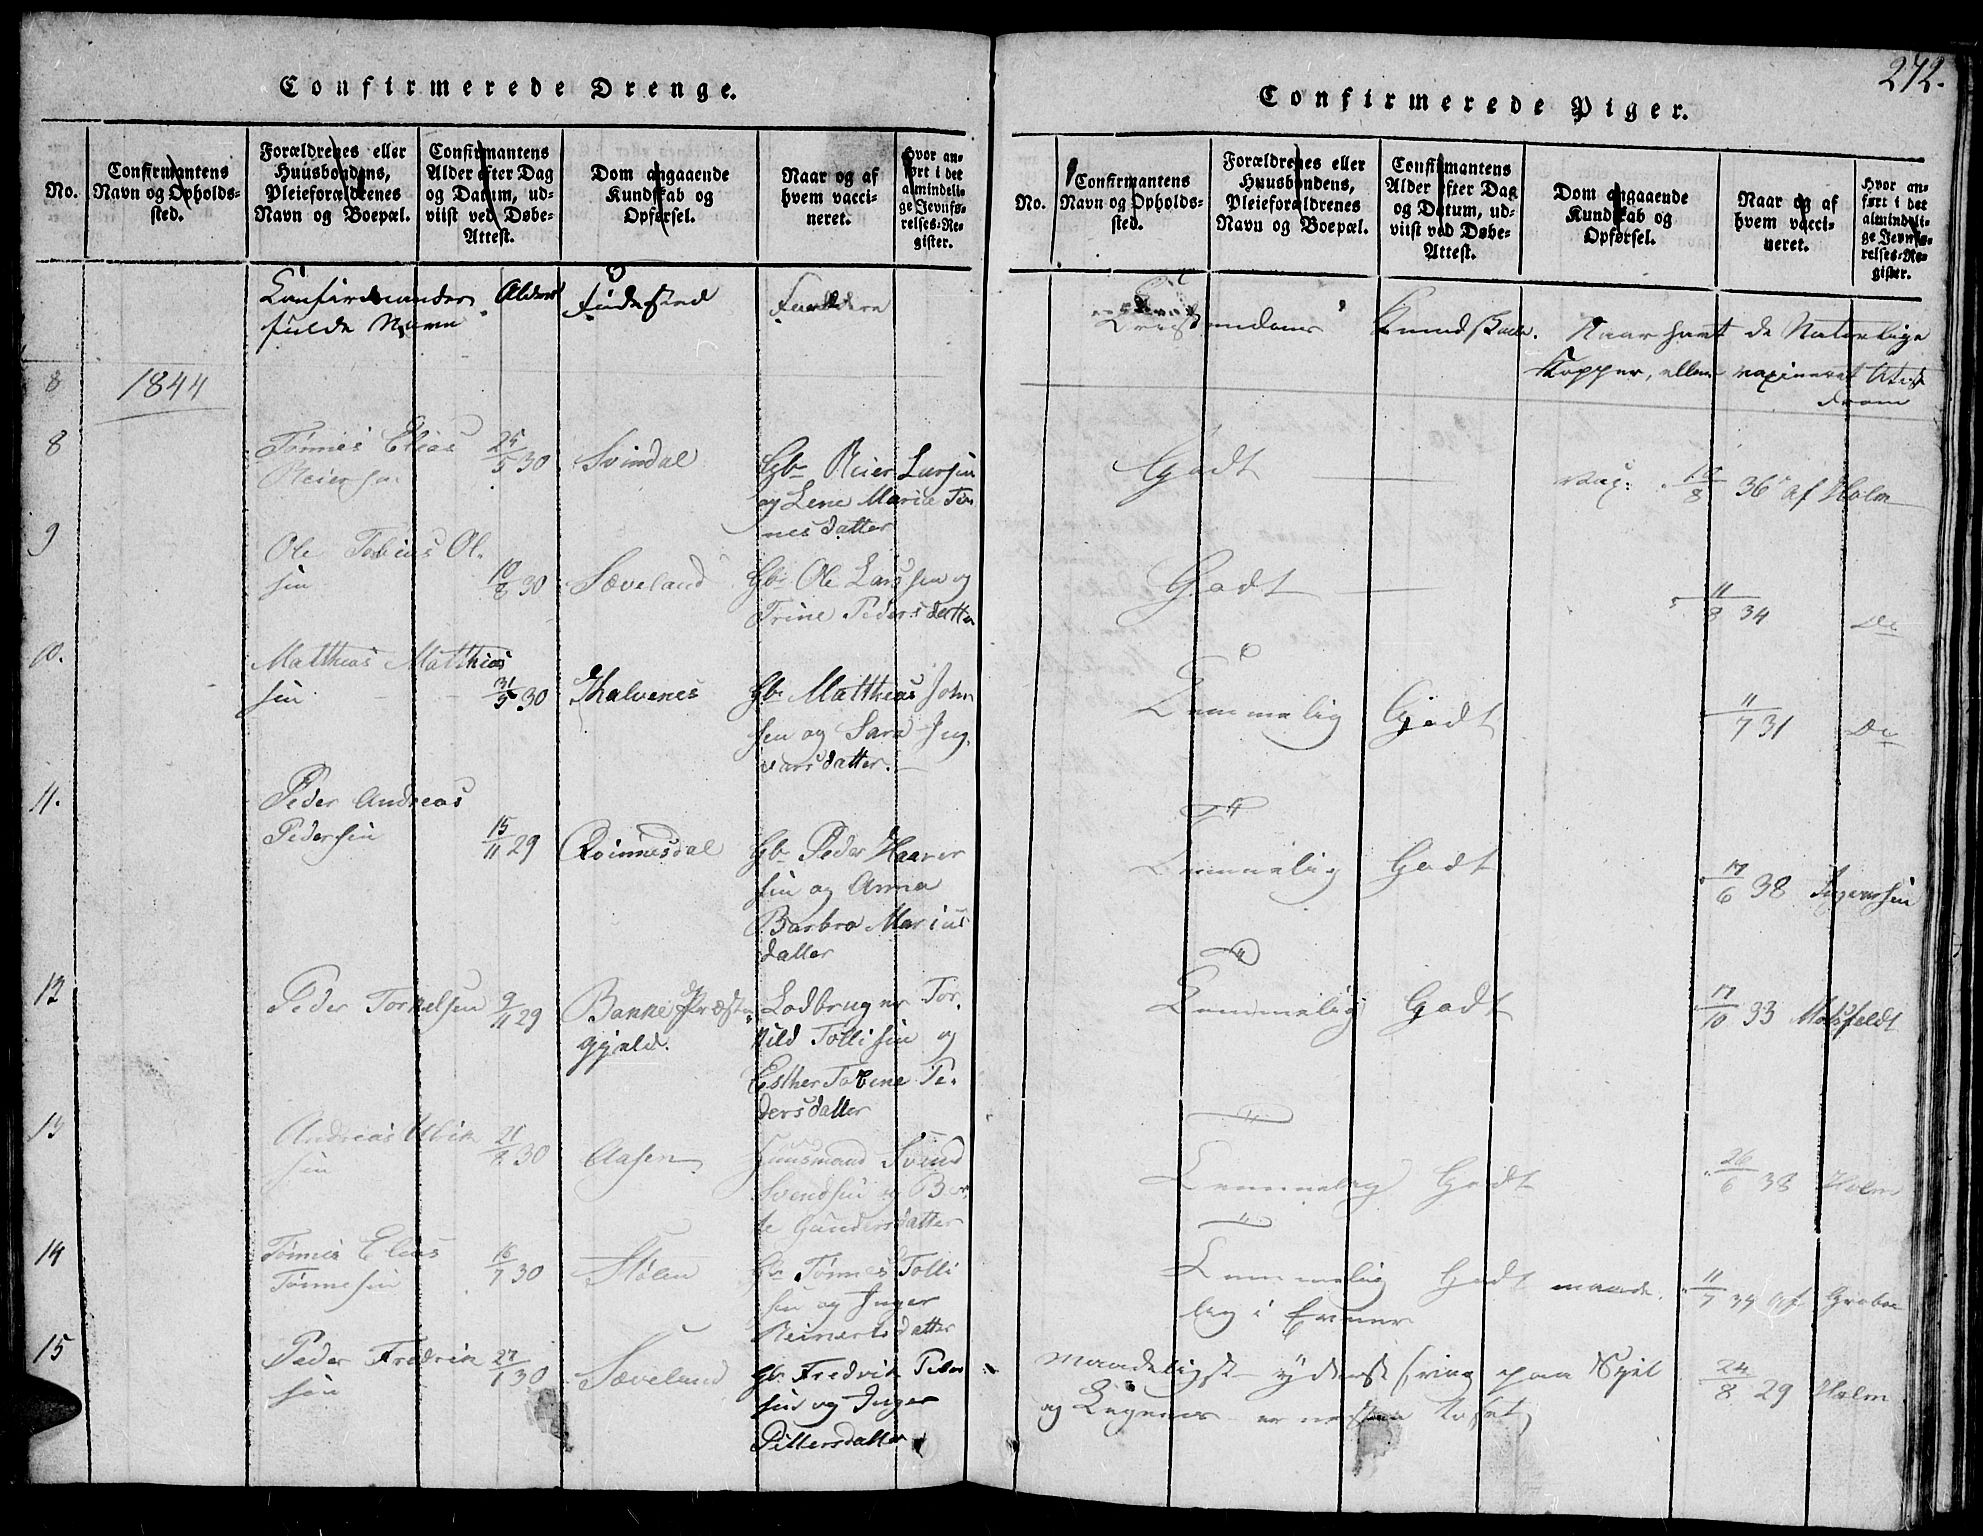 Confirmerede Drenge.
No.
Confirmantens
Navn og Opholds-
sted.
Forældrenes eller
Huusbondens,
Pleieforældrenes
Navn og Boepæl.
Confirmantens
Alder efter Dag
og Datum, ud-
viist ved Døbe-
Attest.
Dom angaaende
Kundskab og
Opførsel.
Naar og af
hvem vacci-
neret.
Hvor an-
ført i det
almindeli-
ge Jevnfø-
relses-Re-
gister.
Confirmanders
fulde Navn
Alder
Fødested
Forældre
8 1844
8 Tønnes Elias 25/5 30 Svindal Gb. Reier Larsen
Reiersen
og Lene Marie Tøn
nesdatter
9 Ole Tobias Ol.
sen 10/8 30 Sæveland Gb. Ole Larssen og
Trine Pedersdatter
10. Matthias Matthias
sen 31/5 30 Kalvenes Gb. Matthias John
sen og Sara Ing.
varsdatter.
11. Peder Andreas
Pedersen 15/11 29 Gb. Peder Haaver
sen og Anna
Barbro Marius
datter
12 Peder Torkelsen 9/11 29 Bakke Præste
gjeld.
Lodbruger Tor.
kild Tollisen og
Esther Tobine Pe-
dersdatter
13 Andreas
sen 30 Aasen Huusmand Svend
Svendsen og Ber
te Gundersdatter
14 Tønnes Elias 16/7 30 Stølen Gb. Tønnes Tolli
Tønnesen
sen og Inger
Reinertsdatter
15 Peder Fredrik 27/1 30 Sæveland Gb. Fredrik Peder
sen
sen og Inger
Pettersdatter
272.
Confirmerede Piger.
No.
Confirmantens
Navn og Opholds-
sted.
Forældrenes eller
Huusbondens,
Pleieforældrenes
Navn og Boepæl.
Confirmantens
Alder efter Dag
og Datum, ud-
viist ved Døbe-
Attest.
Dom angaaende
Kundskab og
Opførsel.
Naar og af
hvem vacci-
neret.
Hvor an-
ført i det
almindeli-
ge Jevnfø-
relses-Re-
gister.
Christendoms Kundskab. Naar havt de Naturlige
Kopper, eller vaxineret
Godt vax: 10/8 36 af Holm
Godt 11/8 34 Do
Temmelig Godt 11/7 31 Do
Temmelig Godt 17/6 38 Ingversen
Temmelig Godt 17/10 33 Motzfeldt
Temmelig Godt 26/6 38 Holm
Temmelig Godt maade- 11/7 34 af
lig i Evner
Maadeligst
og 24/8 29 Holm